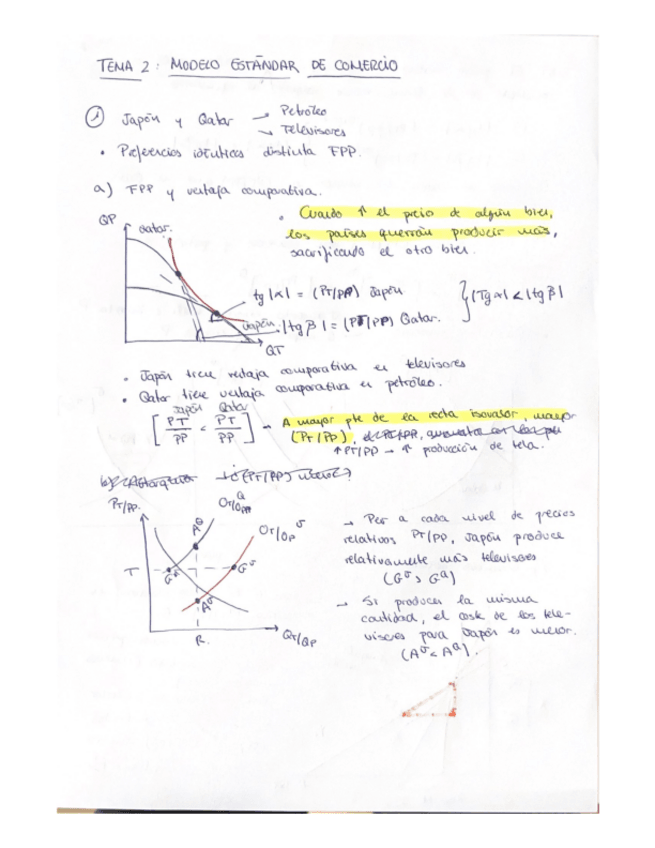 TEMA 2: MODELO ESTÁNDAR DE COMERCIO
① Japón y Qatar → Petróleo
→ Televisores
• Preferencias idénticas distinta FPP.
a) FPP y ventaja comparativa.
QP
Qatar.
• Cuando ↑ el precio de algún bien,
los países querrán producir más,
sacrificando el otro bien.
tg|α| = (PT/PP) Japón
Japón.
|tg β| = (PT/PP) Qatar.
}|Tg α| < |tg β|
QT
• Japón tiene ventaja comparativa en televisores
• Qatar tiene ventaja comparativa en petróleo.
Japón Qatar
[PT/PP < PT/PP] - A mayor pte de la recta isovalor, mayor
(PT/PP),
↑PT/PP → ↑ producción de tela.
b)
PT/PP.
OT/OP Q
OT/OP J
AQ
GQ
GJ
AJ
T
R.
QT/QP
→ Per a cada nivel de precios
relativos PT/PP, Japón produce
relativamente más televisores
(GJ > GQ)
→ Si producen la misma
cantidad, el coste de los tele-
visores para Japón es menor.
(AJ < AQ).